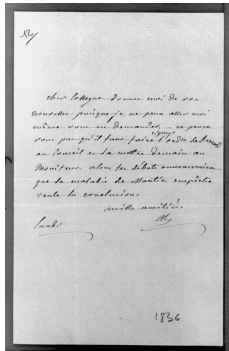 cher collègue donnez moi de vos
nouvelles puisque je ne peux aller moi
même vous en demander. ne pensez
vous pas qu'il faut faire signer l'ordre de
au Conseil et la mettre demain au
Moniteur, alors les débats
que la maladie de Martin empêche
seule la conclusion.
mille amitiés
lundi
1836